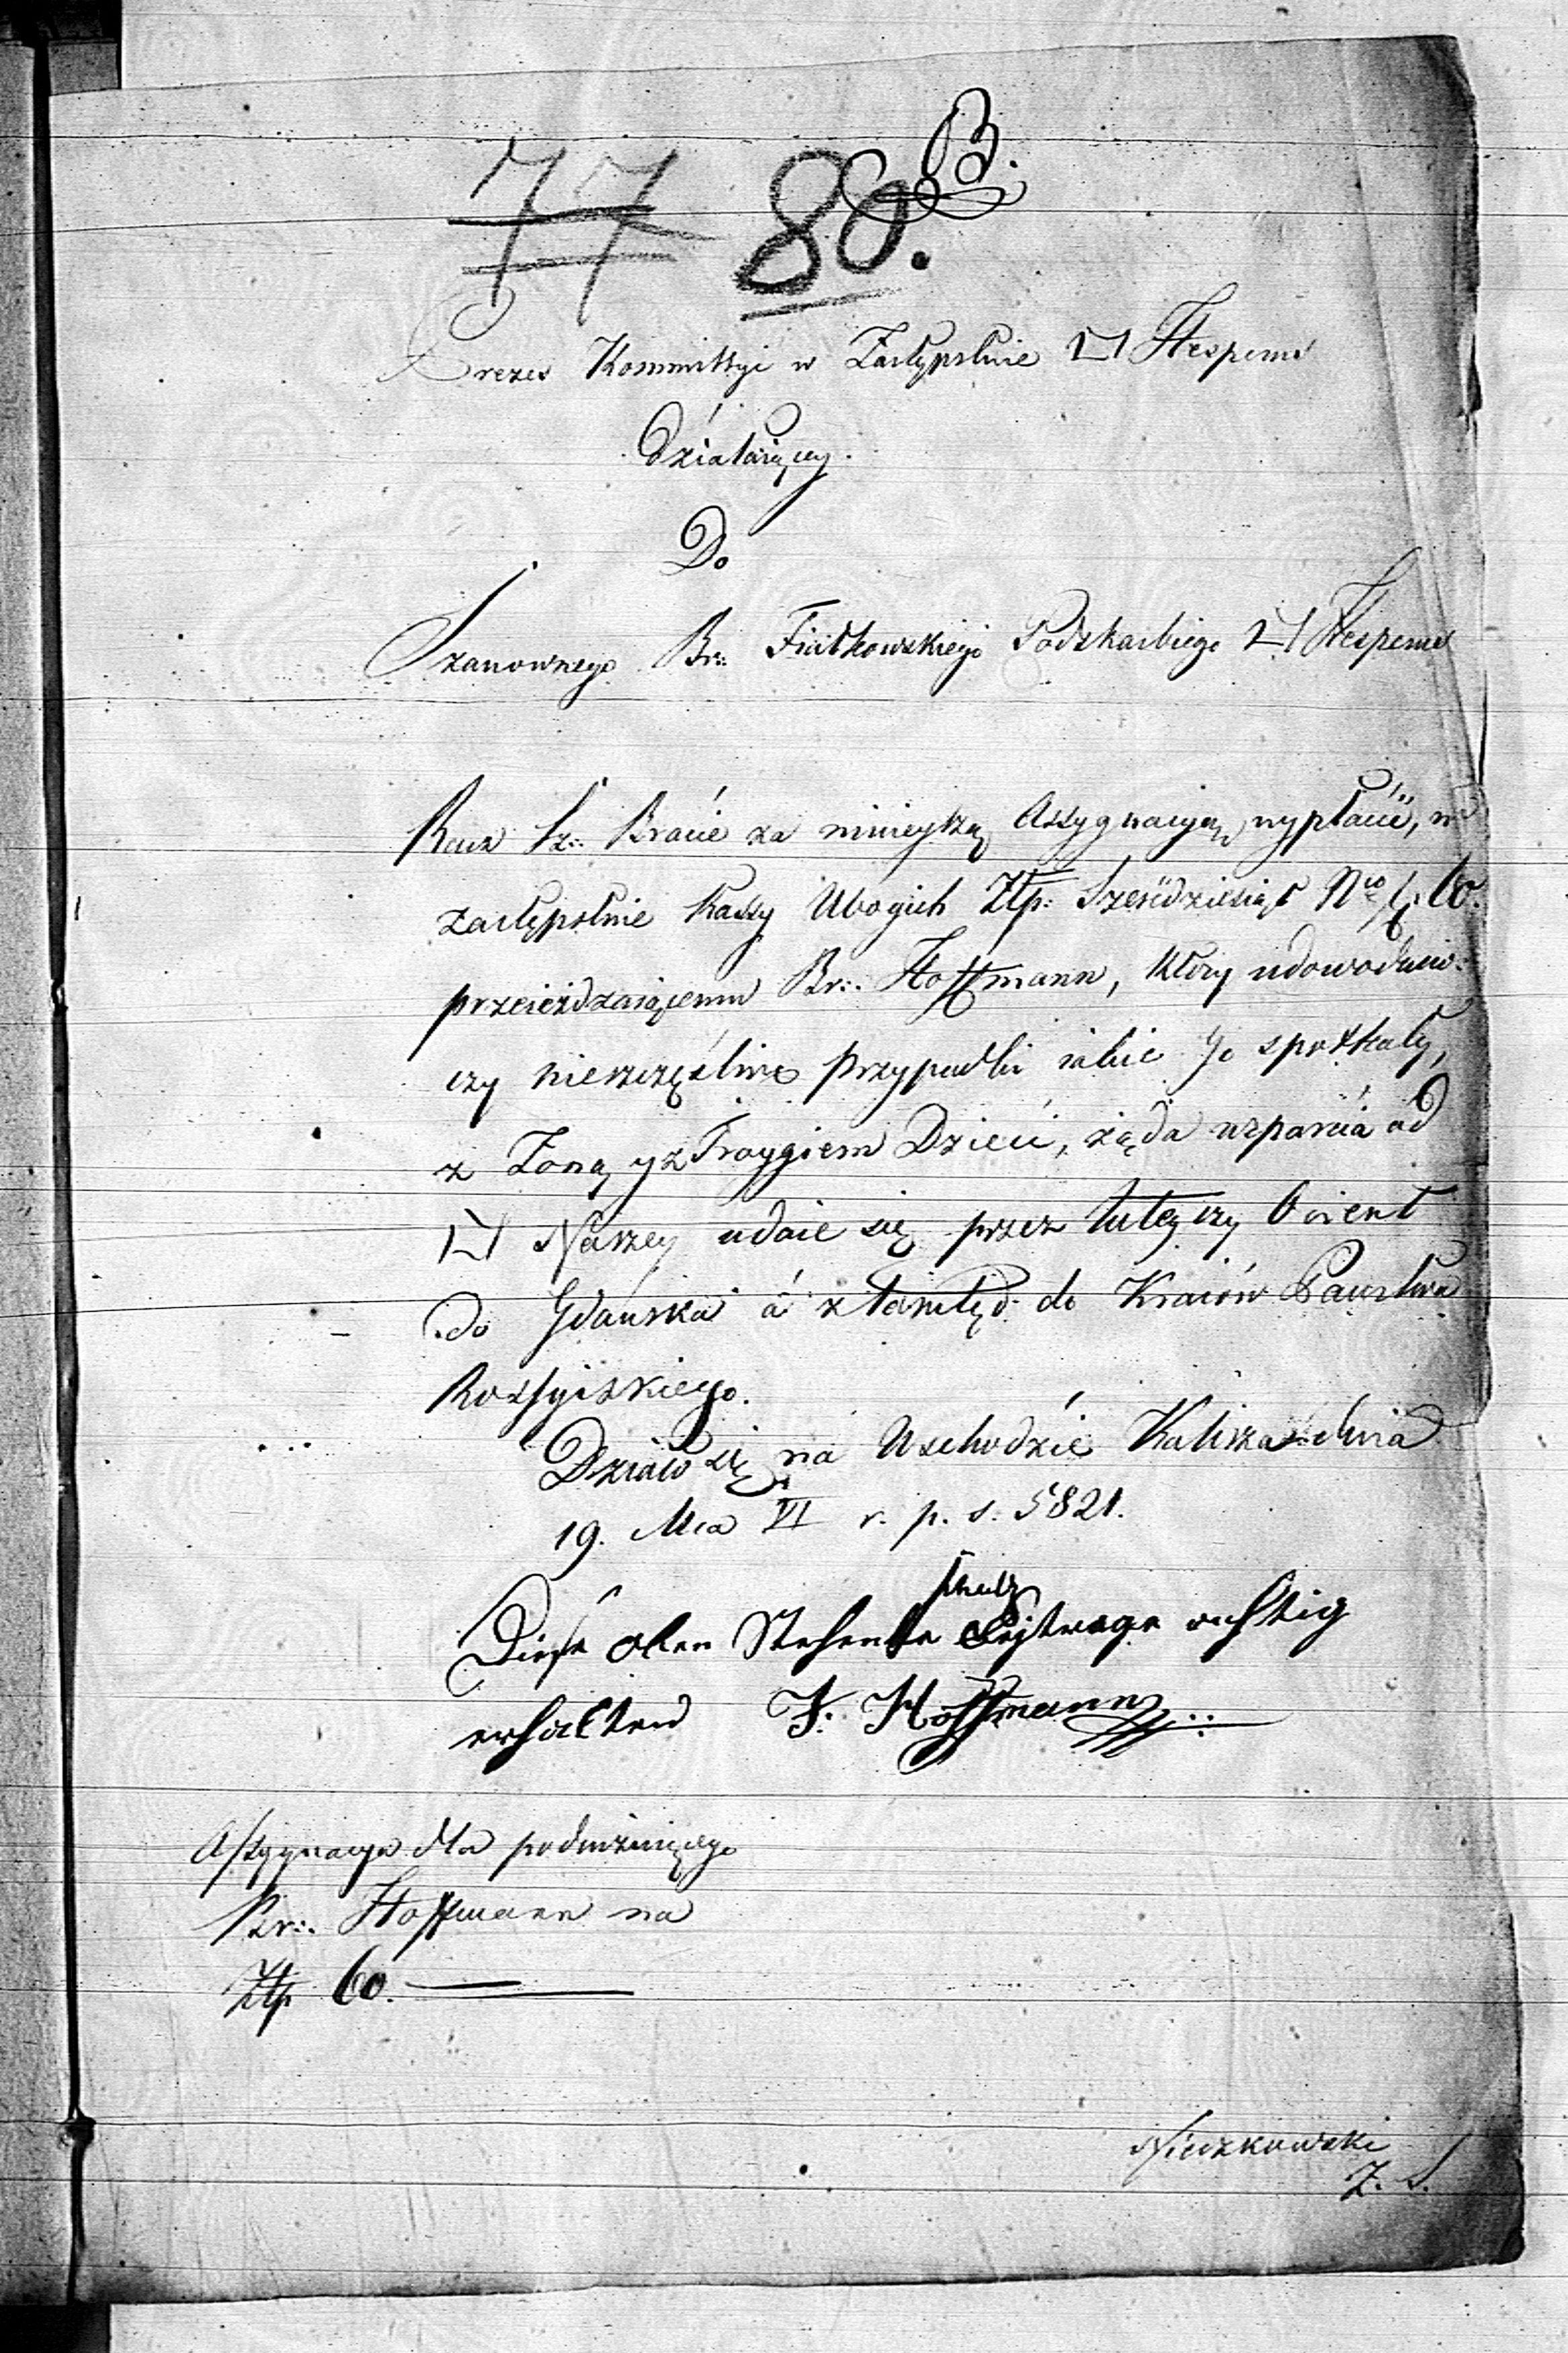 77 80. B.
Prezes Kommissyi w Zastępstwie □ Hesperus
Działaiącey.
Do
Szanownego Br∴ Fiałkowskiego Podskarbiego □ Hesperus
Racz Sz∴ Bracie za ninieyszą Assygnacyą wypłacić, w
zastępstwie Kassy Ubogich Złp: Sześćdziesiąt Nro f. 60.
przeieżdzaiącemu Br∴ Hoffmann, który udowodniw-
szy nieszczęśliwe przypadki iakie Go spotkały,
z Żoną y z Troygiem Dzieci, żąda wsparcia od
□ Naszey udaie się przez tuteyszy Orient
do Gdańska á ztamtąd do Kraiów Państwa
Rossyiskiego.
Działo się na Wschodzie Kalisza dnia
19. Mca VI r. p. ś. 5821.
Diese oben Stehende Beitrage richtig
erhalten F. Hoffmann
Assygnacya dla podróżuiącego
Br∴ Hoffmann na
Złp 60.
Z. S.